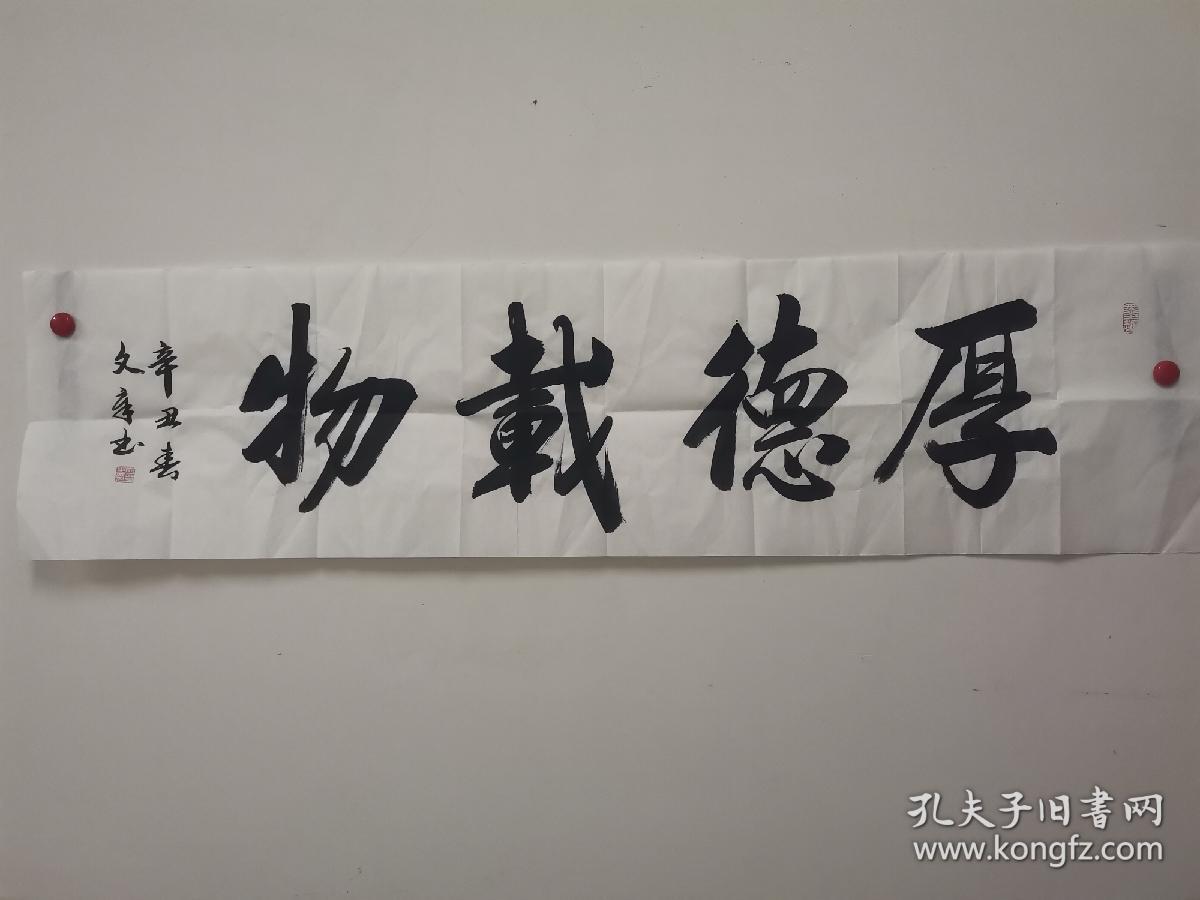 厚德載物
辛丑春
文章书
孔夫子旧书网
www.kongfz.com